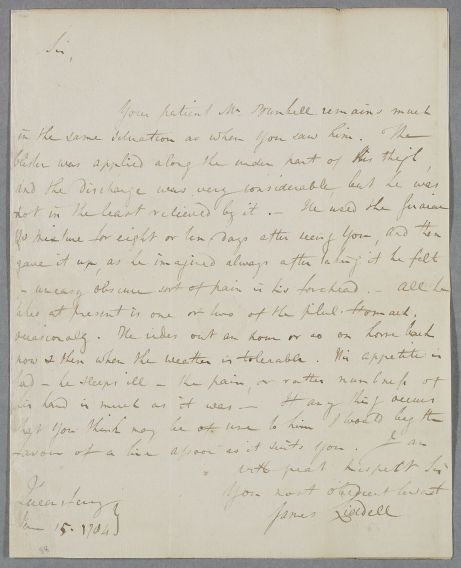 Sir,
Your patient Mr Bunhell remains much
in the same situation as when you saw him. The
blister was applied along the under part of his thigh,
and the discharge was very considerable, but he was
not in the least relieved by it. – He used the
mixture for eight or ten days after seeing you, and then
gave it up, as he imagined always after taking it he felt
– uneasy obscure sort of pain in his forehead. – All he
takes at present is one or two of the pilul: Stomach.
occasionaly. He rides out an hour or so on horse back
now & then when the weather is tolerable. His appetite is
bad – he sleeps ill – the pain, or rather numbness of
his hand is much as it was – If any thing occurs
that you think may be of use to him I would beg the
favour of a line as soon as it suits you. I am
with great respect Sir
Your most obedient Servt
James Liddell
15. 1784